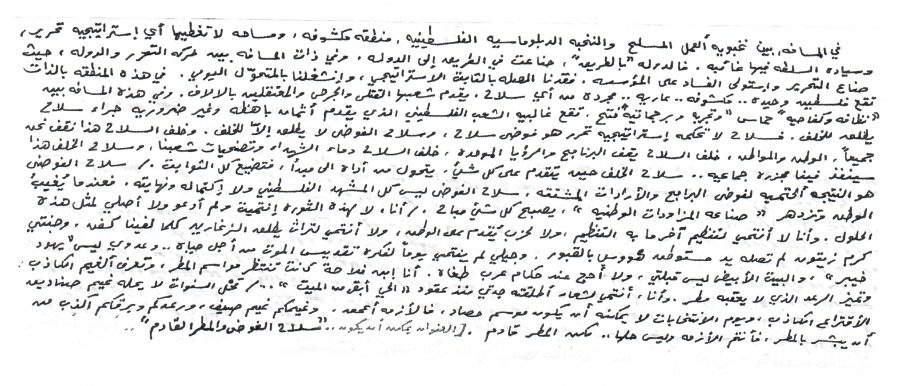 في المسافه بين نخبويه العمل المسلح والنخبه الدبلوماسيه الفلسطينيه، منطقه مكشوفه، ومساحه لا تغطيها أي إستراتيجيه تحرير،
وسياده السلطه فيها غائبه. فالدوله "بالطريق"، ضاعت في الطريق إلى الدوله. وفي ذات المسافه بين حركه التحرر والدوله، حيث
ضاع التحرير واستولى الفساد على المؤسسه. فقدنا الصله بالثابت الاستراتيجي، وإنشغلنا بالمتحول اليومي. في هذه المنطقه بالذات
تقع فلسطين وحيده.. مكشوفه.. عاريه.. مجرده من أي سلاح. يقدم شعبها القتلى والجرحى والمعتقلين بالآلاف. وفي هذه المسافه بين
"نظافه وكفاحيه" حماس "وتجربه وبرجماتيه" فتح، تقع غالبيه الشعب الفلسطيني الذي يقدم أثمان باهظه وغير ضروريه جراء سلاح
يطلقه للخلف. فسلاح لا تحكمه إستراتيجيه تحرر هو فوضى سلاح، وسلاح الفوضى لا يطلق إلا للخلف. وخلف السلاح هذا نقف نحن
جميعاً، الوطن والمواطن، خلف السلاح يقف البرنامج والرؤيا الموحده، خلف السلاح دماء الشهداء وتضحيات شعبنا، وسلاح الخلف هذا
سينفذ فينا مجزره جماعيه.. سلاح الخلف حين يتقدم على كل شيء، يتحول من أداة الى مبدأ، فتضيع كل الثوابت./ سلاح الفوضى
هو النتيجه الحتميه لفوضى البرامج والأرادات المشتته، سلاح الفوضى ليس كل المشهد الفلسطيني ولا إكتماله ونهايته. فعندما يُغيب
الوطن وتزدهر "صناعه المزاودات الوطنيه"، يصبح كل شيء مباح./ أنا، لا لهذه الثوره إنتميت ولم أدعو ولا أصلي لمثل هذه
الحلول. وأنا لا أنتمي لتنظيم آخر ما به التنظيم، ولا لحزب يُقدم على الوطن، ولا أنتمي لتراث يطلق الزغاريد كلما لفينا كفن. وجبهتي
كرم زيتون لم تصله يد مستوطن مهووس بالقبور. وجيلي لم ينتمي يوماً لفكرة تقديس الموت من أجل حياة.. وعدوي ليس "يهود
خيبر"، والبيت الأبيض ليس قبلتي، ولا أحج عند حكام عرب طغاة. أنا إبن فلاحة كانت تنتظر مواسم المطر، وتعرف الغيم الكاذب،
وتميز الرعد الذي لا يعقبه مطر. وأنا، أنتمي لشعار أطلقته جدتي منذ عقود "الحي أبقى من الميت"../ محل السنوات لا يحله غيم صناديق
الأقتراع الكاذب، ويوم الأنتخابات لا يمكنه أن يكون موسم حصاد، فالأزمه أعمق. وغيمكم غيم صيف، ورعدكم وبرقكم أكذب من
أن يبشر بالمطر، فأنتم الأزمه وليس حلها.. لكن المطر قادم. [العنوان يمكن أن يكون.. "سلاح الفوضى والمطر القادم"..